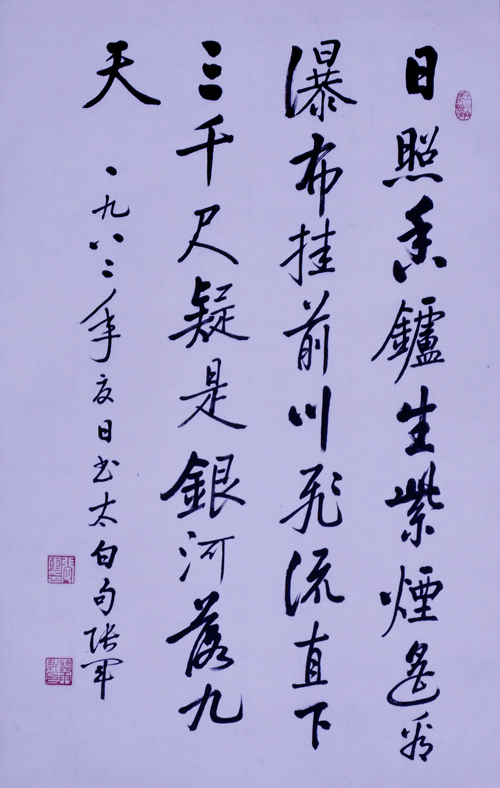 日照香鑪生紫煙遙看
瀑布挂前川飛流直下
三千尺疑是銀河落九
天
一九八二年夏日书太白句张军